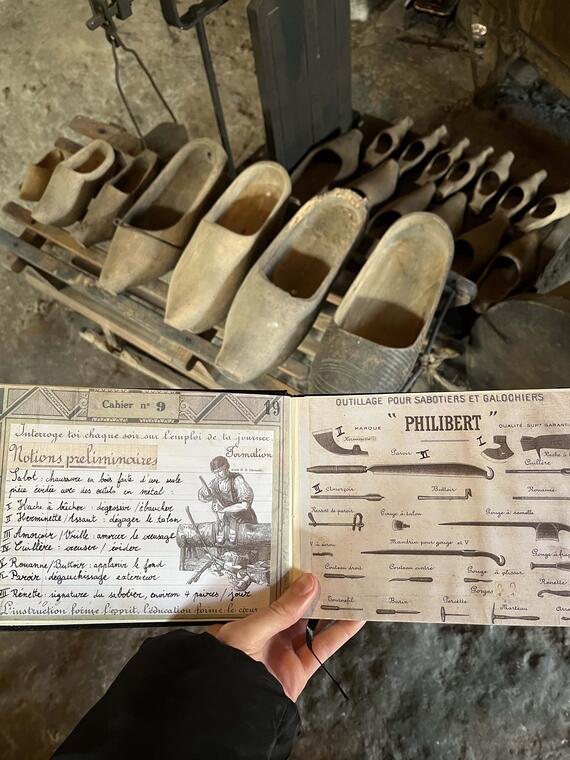 Cahier n° 9
19
Interroge toi chaque soir sur l'emploi de ta journée
Notions préliminaires
Formation
Sabot : chaussure en bois faite d'une seule
pièce évidée avec des outils en métal :
I Hache à bûcher : dégrossir / ébaucher
II Herminette / Assaut : dégager le talon
III Amorçoir / Vrille : amorcer le creusage
IV Cuillère : creuser / évider
V Rouanne / Buttoir : applanir le fond
VI Paroir : dégauchissage extérieur
VII Renette : signature du sabotier, environ 4 paires / jour
L'instruction forme l'esprit, l'éducation forme le cœur
OUTILLAGE POUR SABOTIERS ET GALOCHIERS
MARQUE
" PHILIBERT "
QUALITÉ SUPre GARANTI
II
Herminette
Paroir
VI
I
Hache à
Cuillère
III Amorçoir
Buttoir
Rouanne
Ressort de paroir
Rouge à semelle
Mandrin pour gouge et V
Couteau droit
Couteau cintré
Renette
Burin
Marteau